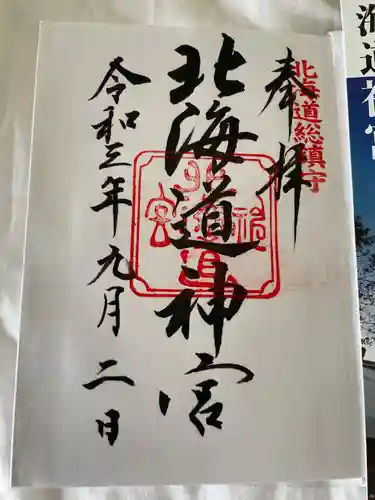 奉拝
北海道総鎮守
北海道神宮
令和三年九月二日
海道神宮